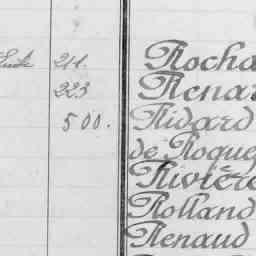 Suite 211. Rocha
223 Renar
500. Ridard
de Roque
Rivière
Rolland
Renaud